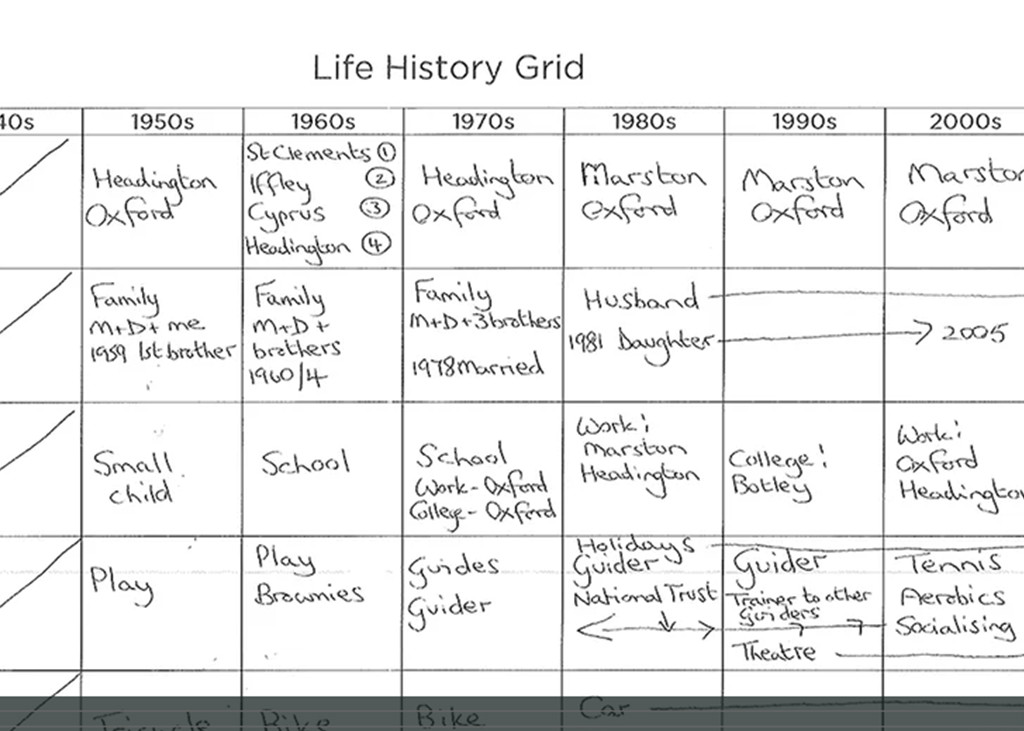 Life History Grid
40s 1950s 1960s 1970s 1980s 1990s 2000s
Headington
Oxford
St Clements ①
Iffley ②
Cyprus ③
Headington ④
Headington
Oxford
Marston
Oxford
Marston
Oxford
Marston
Oxford
Family
M+D+ me
1959 1st brother
Family
M+D+
brothers
1960/4
Family
M+D+3brothers
1978 Married
Husband
1981 Daughter → 2005
Small
child
School
School
Work - Oxford
College - Oxford
Work:
Marston
Headington
College:
Botley
Work:
Oxford
Headington
Play
Play
Brownies
Guides
Guider
Holidays
Guider
National Trust
Guider
Trainer to other
guiders
Theatre
Tennis
Aerobics
Socialising
Tricycle
Bike
Bike
Car